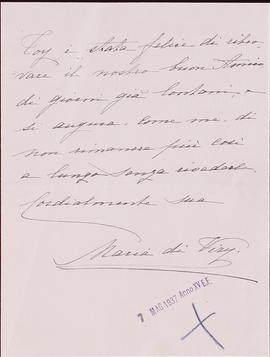 Toy è stata felice di ritro-
vare il nostro buon Amico
di giorni già lontani, e
si augura, come me, di
non rimanere più così
a lungo senza rivederla.
Cordialmente sua
Maria di
7 MAG 1937 Anno XV E.F.